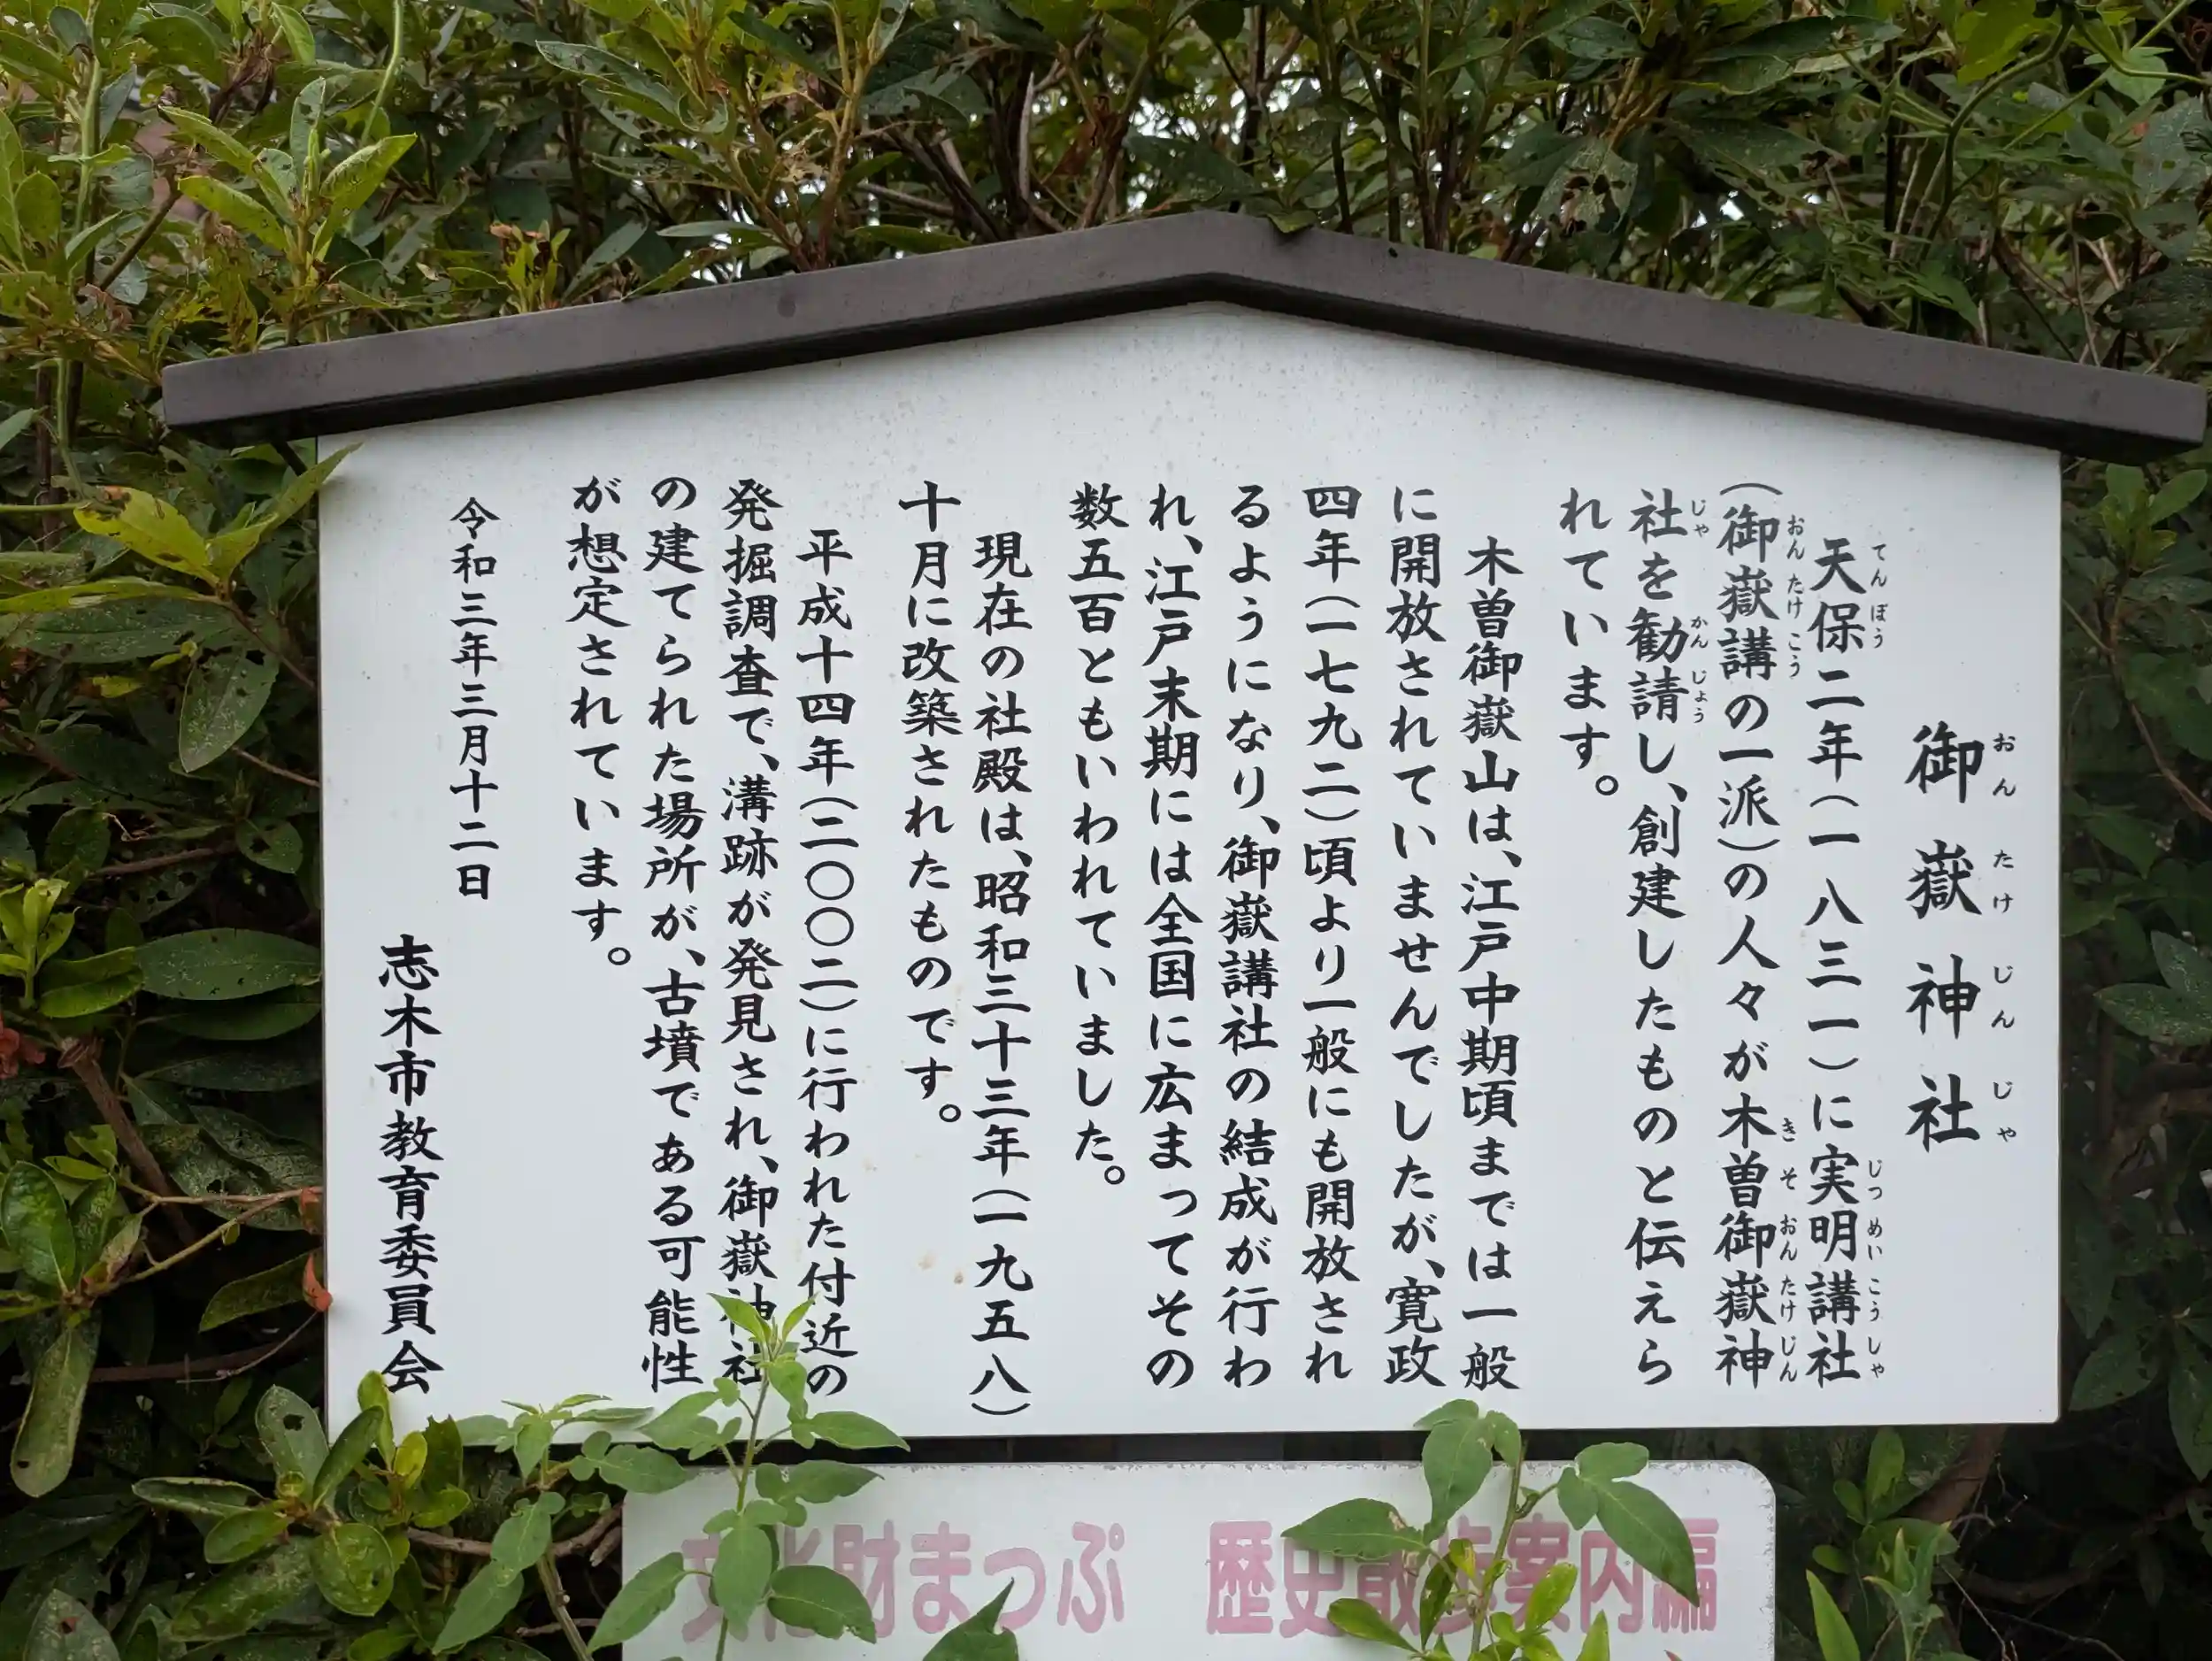 御嶽神社
おんたけじんじゃ
天保二年（一八三一）に実明講社
てんぽう じつめいこうしゃ
（御嶽講の一派）の人々が木曽御嶽神
おんたけこう きそおんたけじん
社を勧請し、創建したものと伝えら
じゃ かんじょう
れています。
木曽御嶽山は、江戸中期頃までは一般
に開放されていませんでしたが、寛政
四年（一七九二）頃より一般にも開放され
るようになり、御嶽講社の結成が行わ
れ、江戸末期には全国に広まってその
数五百ともいわれていました。
現在の社殿は、昭和三十三年（一九五八）
十月に改築されたものです。
平成十四年（二〇〇二）に行われた付近の
発掘調査で、溝跡が発見され、御嶽神社
の建てられた場所が、古墳である可能性
が想定されています。
令和三年三月十二日
志木市教育委員会
文化財まっぷ 歴史散歩案内編